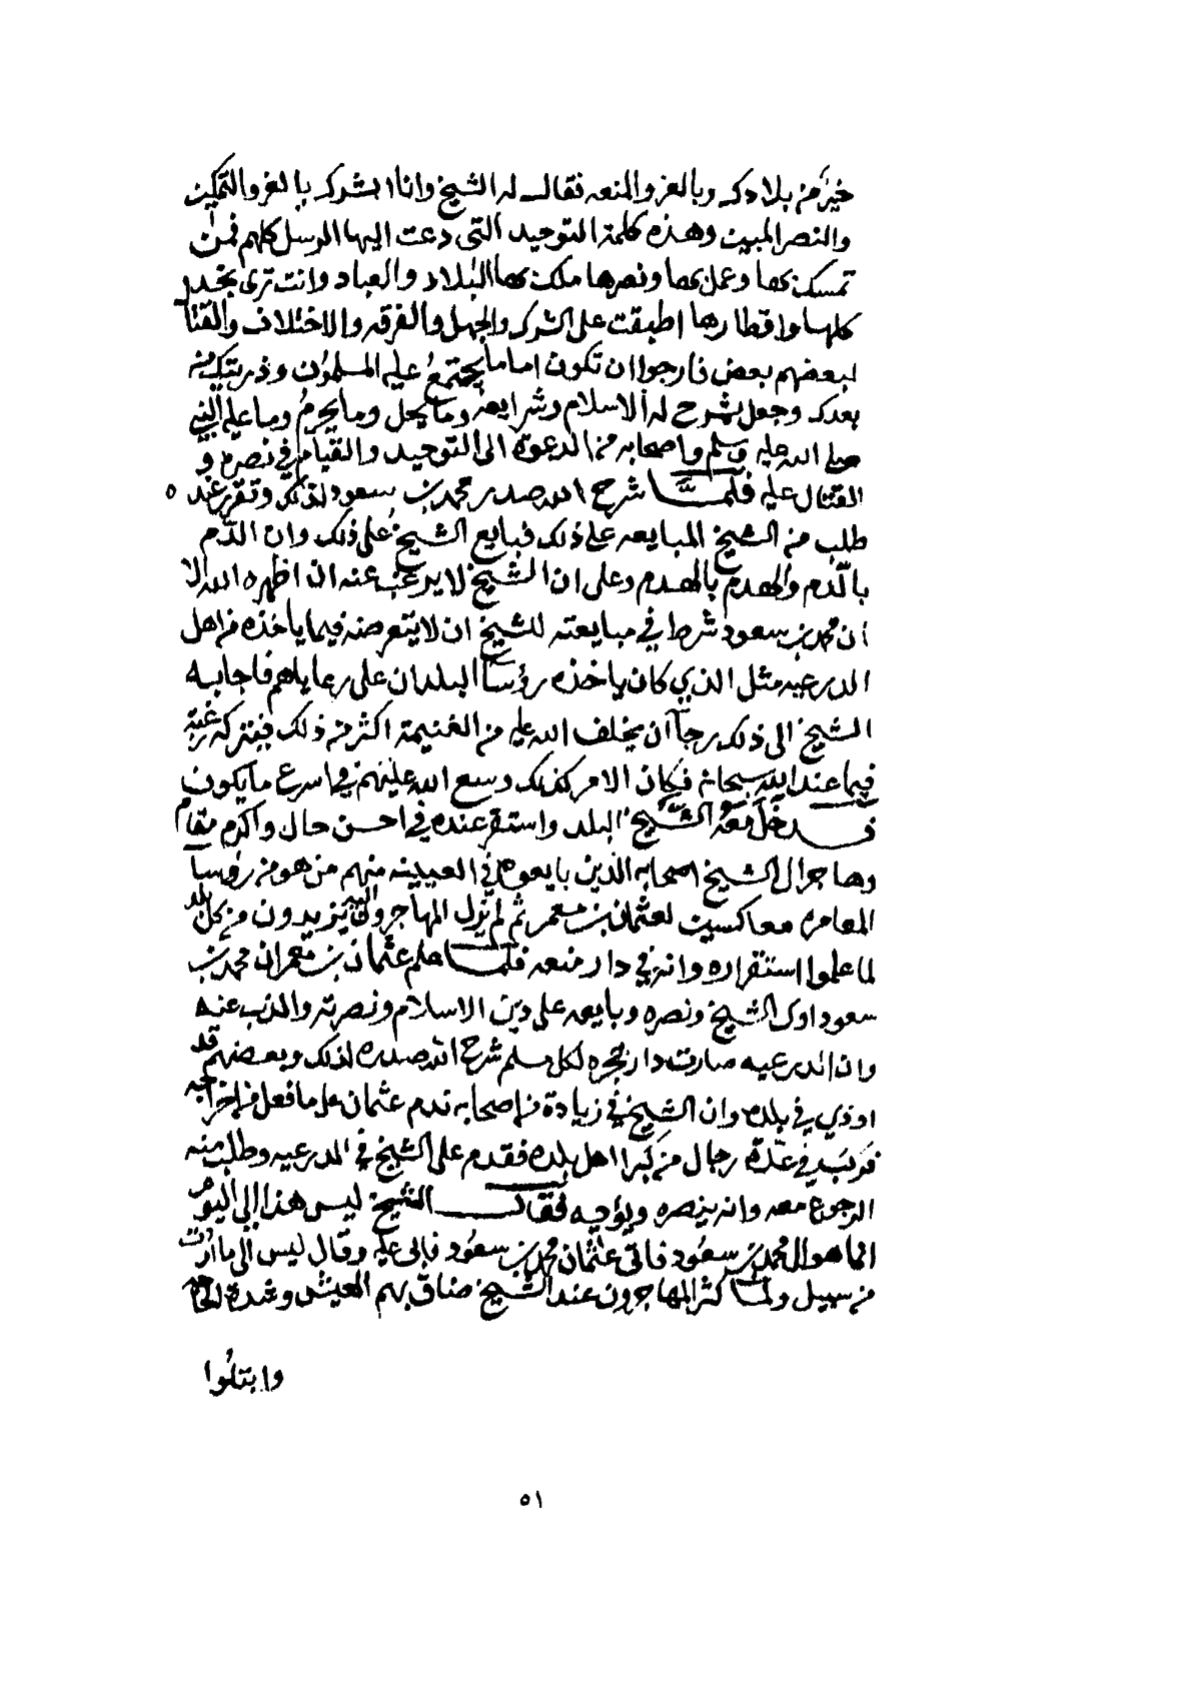 خير من بلادك وبالعز والمنعه فقال له الشيخ وانا ابشرك بالعز والتمكين
والنصر المبين وهذه كلمة التوحيد التي دعت اليها الرسل كلهم فمن
تمسك بها وعمل بها ونصرها ملك بها البلاد والعباد وانت ترى نجد
كلها واقطارها اطبقت على الشرك والجهل والفرقه والاختلاف والقتال
لبعضهم بعض فارجوا ان تكون اماما يجتمع عليه المسلمون وذريتك من
بعدك وجعل يشرح له الاسلام وشرايعه وما يحل وما يحرم وما عليه النبي
صلى الله عليه وسلم واصحابه من الدعوة الى التوحيد والقيام في نصره و
القتال عليه فلما شرح الله صدر محمد بن سعود لذلك وتقرر عنده
طلب من الشيخ المبايعه على ذلك فبايع الشيخ على ذلك وان الدم
بالدم والهدم بالهدم وعلى ان الشيخ لا يرغب عنه ان اظهره الله الا
ان محمد بن سعود شرط في مبايعته للشيخ ان لا يتعرضه فيما ياخذه من اهل
الدرعيه مثل الذي كان ياخذه رؤسا البلدان على رعاياهم فاجابه
الشيخ الى ذلك رجآ ان يخلف الله عليه من الغنيمة اكثر من ذلك فيتركه رغبة
فيما عند الله سبحانه فكان الامر كذلك وسع الله عليهم في اسرع ما يكون
فدخل معه الشيخ البلد واستقر عنده في احسن حال واكرم مقام
وهاجر الى الشيخ اصحابه الذين بايعوه في العيينه منهم من هو من رؤسا
المعامره معاكسين لعثمان بن معمر ثم لم تزل المهاجرون اليه يزيدون من كل بلد
لما علموا استقراره وانه في دار منعه فلما علم عثمان بن معمر ان محمد بن
سعود اوى الشيخ ونصره وبايعه على دين الاسلام ونصرته والذب عنه
وان الدرعيه صارت دار هجره لكل مسلم شرح الله صدره لذلك وبعضهم قد
اوذي في بلده وان الشيخ في زيادة من اصحابه ندم عثمان على ما فعل من اخراجه
فركب في عدة رجال من كبرا اهل بلده فقدم على الشيخ في الدرعيه وطلب منه
الرجوع معه وانه ينصره ويؤويه فقال الشيخ ليس هذا الي اليوم
انما هو الى محمد بن سعود فاتى عثمان محمد بن سعود فابى عليه وقال ليس الى ما اردت
من سبيل ولما كثر المهاجرون عند الشيخ ضاق بهم العيش وشدة الحاجه
وابتلوا
٥١